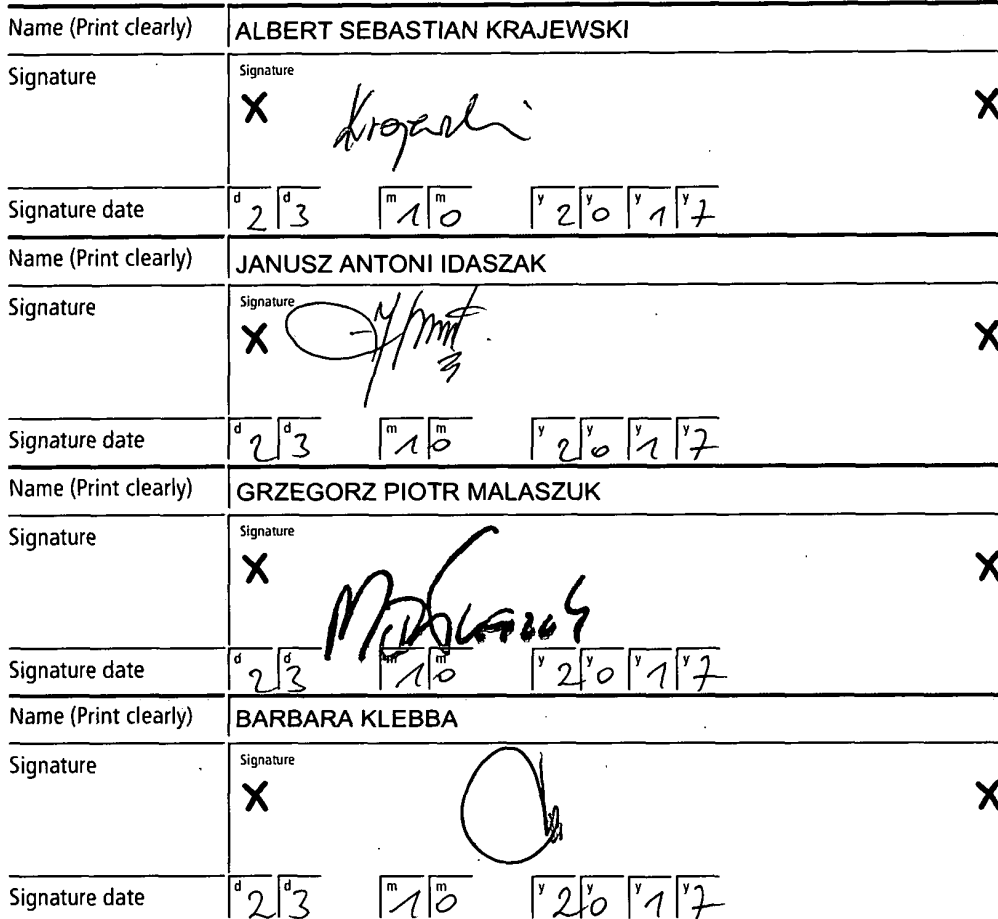 Name (Print clearly) ALBERT SEBASTIAN KRAJEWSKI
Signature Signature
X Krajewski X
Signature date d 2 d 3 m 1 m 0 y 2 y 0 y 1 y 7
Name (Print clearly) JANUSZ ANTONI IDASZAK
Signature Signature
X X
Signature date d 2 d 3 m 1 m 0 y 2 y 0 y 1 y 7
Name (Print clearly) GRZEGORZ PIOTR MALASZUK
Signature Signature
X X
Signature date d 2 d 3 m 1 m 0 y 2 y 0 y 1 y 7
Name (Print clearly) BARBARA KLEBBA
Signature Signature
X X
Signature date d 2 d 3 m 1 m 0 y 2 y 0 y 1 y 7